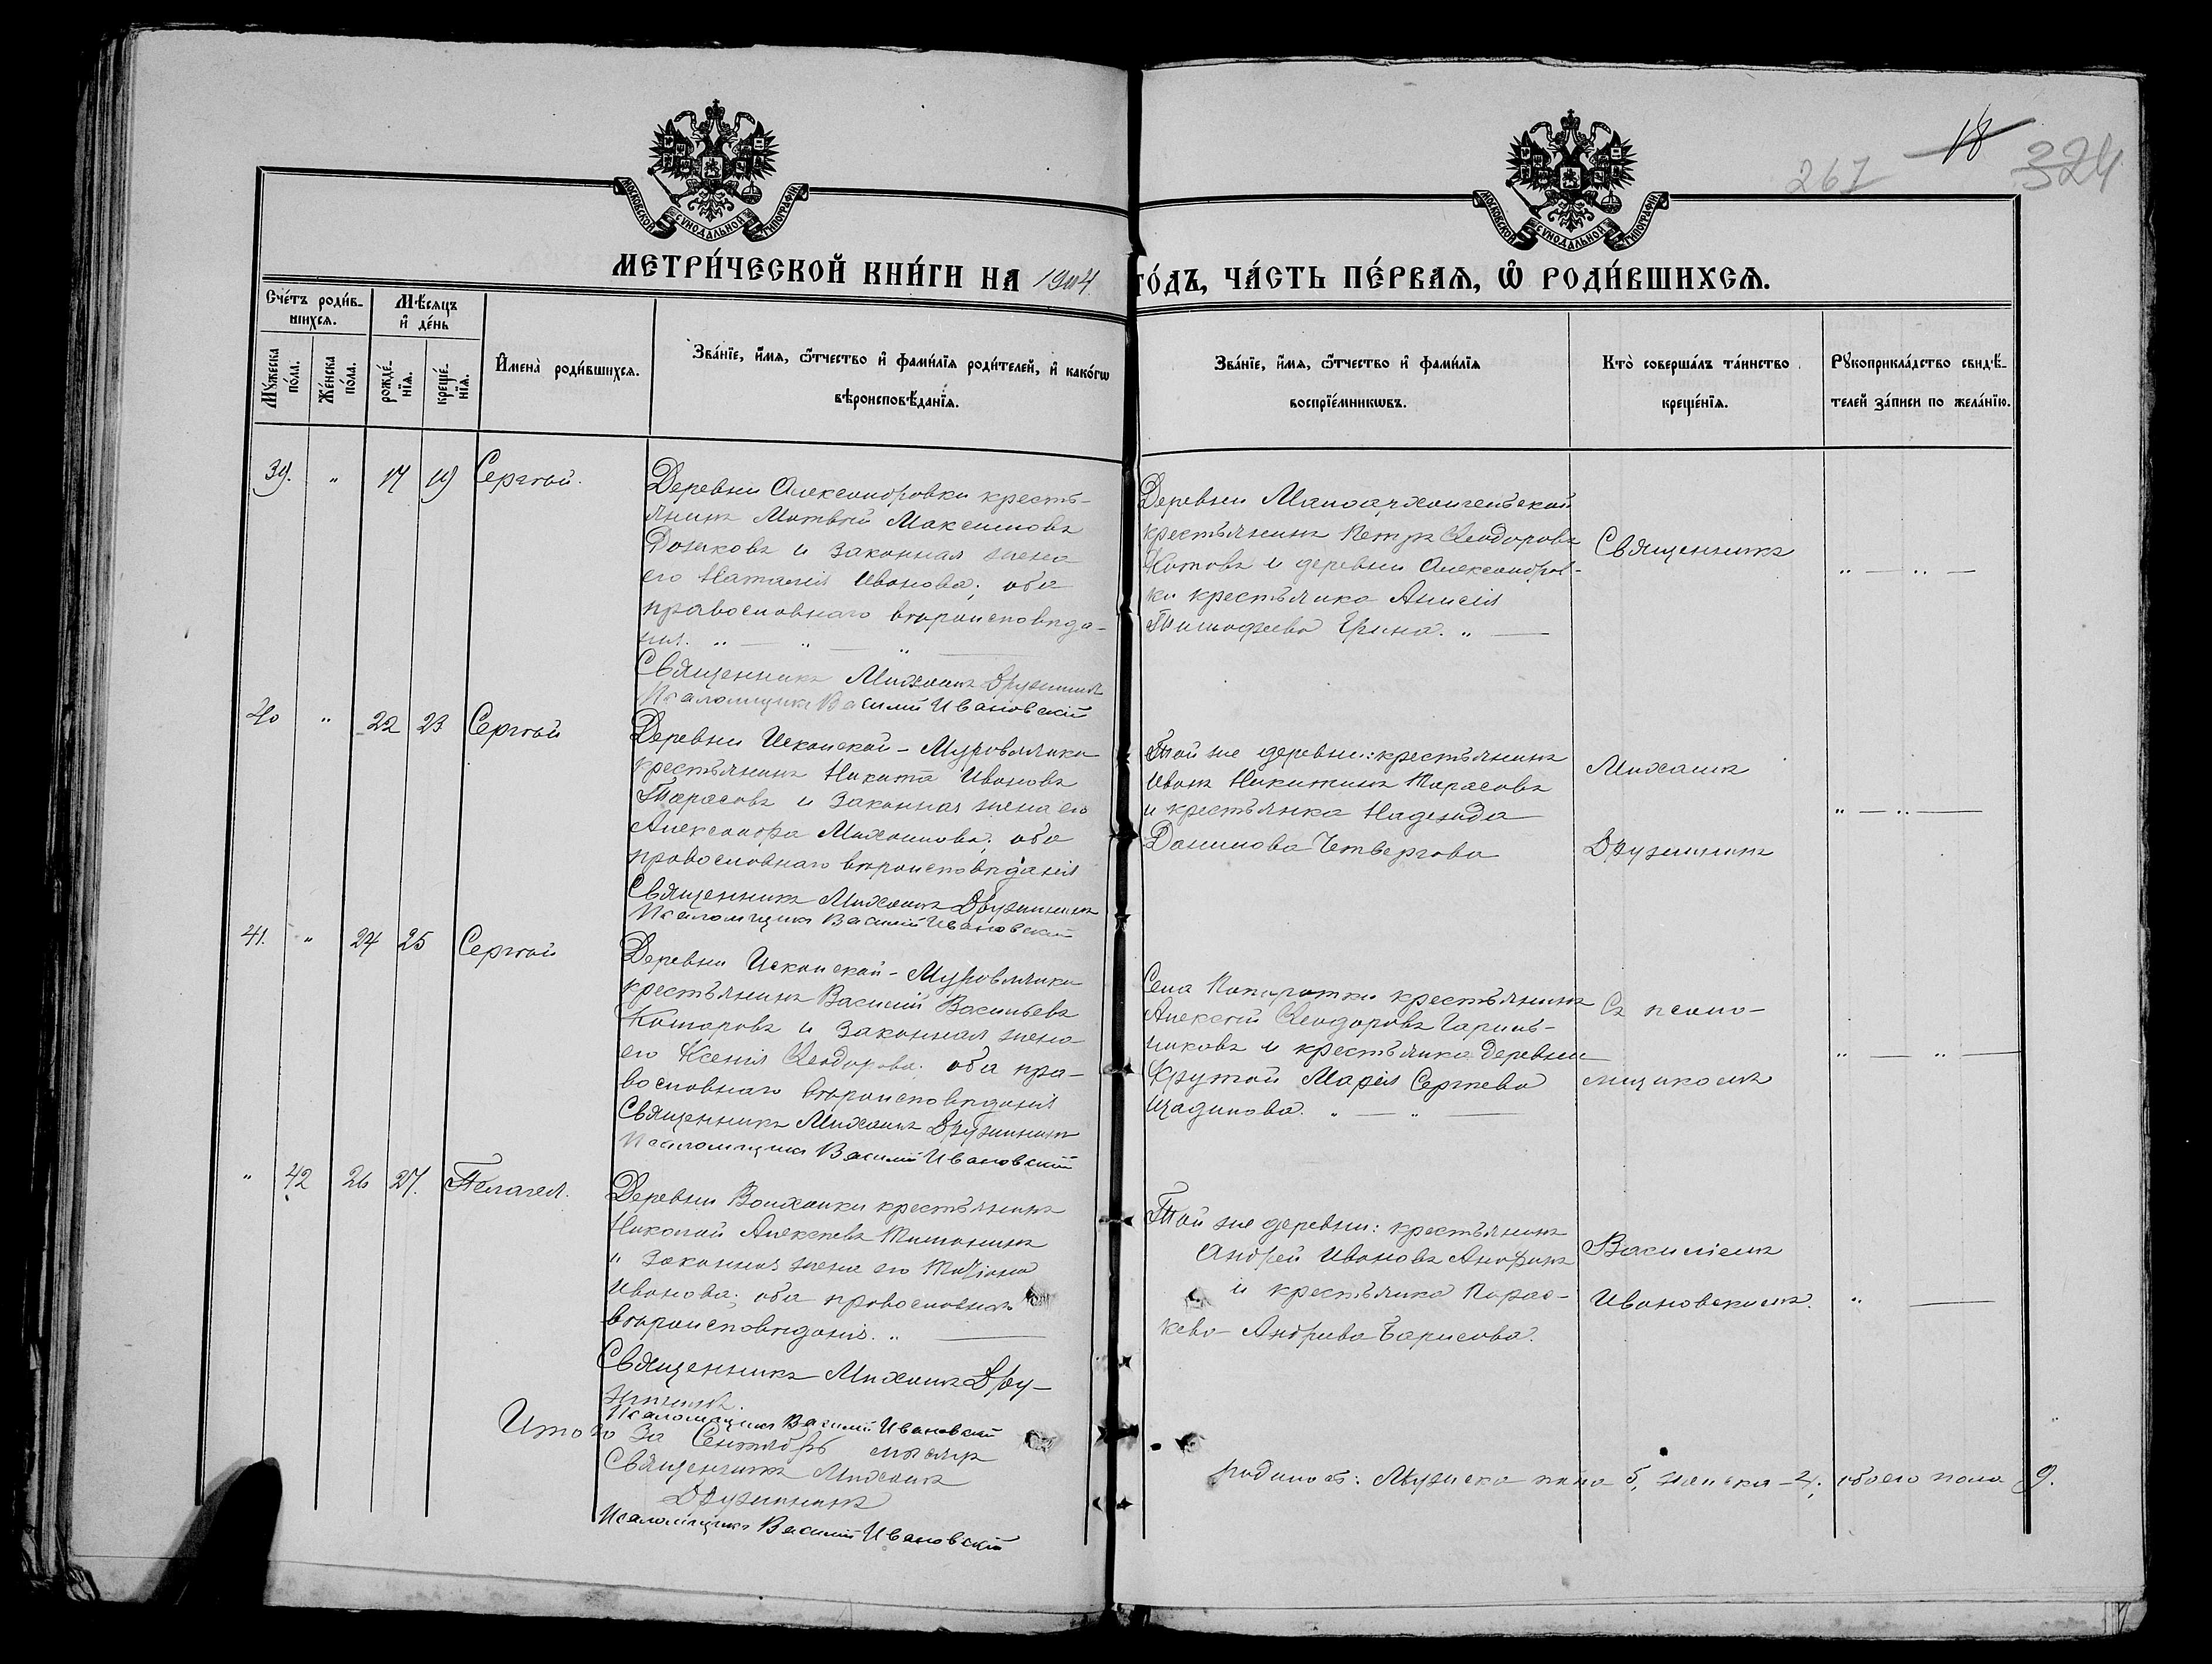 18
267
324
МОСКОВСКОЙ СѴНОДАЛЬНОЙ ТИПОГРАФІИ
МОСКОВСКОЙ СѴНОДАЛЬНОЙ ТИПОГРАФІИ
МЕТРИ́ЧЕСКОЙ КНИ́ГИ НА 1904 ГО́ДЪ, ЧА́СТЬ ПЕ́РВАѦ, Ѡ҆ РОДИ́ВШИХСѦ.
Сче́тъ роди́в-
шихсѧ.
Мꙋ́жеска
по́ла.
Же́нска
по́ла.
Мѣ́сѧцъ
и҆ де́нь
рожде́-
нїѧ.
креще́-
нїѧ.
И҆мена̀ роди́вшихсѧ.
Зва́нїе, и҆́мѧ, ѻ҆́тчество и҆ фами́лїѧ роди́телей, и҆ како́гѡ
вѣроисповѣ́данїѧ.
Зва́нїе, и҆́мѧ, ѻ҆́тчество и҆ фами́лїѧ
воспрїе́мникѡвъ.
Кто̀ соверша́лъ та́инство
креще́нїѧ.
Рꙋкоприкла́дство свидѣ́-
телей за́писи по жела́нїю.
39. " 17 19 Сергѣй.
Деревни Александровки кресть-
янинъ Матвѣй Максимовъ
и законная жена
его Наталія Иванова; оба
православнаго вѣроисповѣда-
нія. " — " — " —
Священникъ Михаилъ Дружининъ
Псаломщикъ Василій Ивановскій
Деревни Малоархангельской
крестьянинъ Петръ Ѳеодоровъ
Котовъ и деревни Александров-
ки крестьянка Анисія
Тимофеева " —
Священникъ
" — " —
40 " 22 23 Сергѣй
Деревни Ископской-Муровлянки
крестьянинъ Никита Ивановъ
Тарасовъ и законная жена его
Александра Михаилова; оба
православнаго вѣроисповѣданія
Священникъ Михаилъ Дружининъ
Псаломщикъ Василій Ивановскій
Той же деревни: крестьянинъ
Иванъ Никитинъ Тарасовъ
и крестьянка Надежда
Данилова Четвергова
Михаилъ
Дружининъ
" — " —
41. " 24 25 Сергѣй
Деревни Ископской-Муровлянки
крестьянинъ Василій Васильевъ
Комаровъ и законная жена
его Ксенія Ѳеодорова; оба пра-
вославнаго вѣроисповѣданія
Священникъ Михаилъ Дружининъ
Псаломщикъ Василій Ивановскій
Села Папоротки крестьянинъ
Алексѣй Ѳеодоровъ
и крестьянка деревни
Крутой Марія Сергѣева
" — " —
Съ псало-
мщикомъ
" — " —
" 42 26 27. Пелагея.
Деревни Волханки крестьянинъ
Николай Алексѣевъ Тимонинъ
и законная жена его Татіана
Иванова; оба православнаго
вѣроисповѣданія. " —
Священникъ Михаилъ Дру-
жининъ.
Псаломщикъ Василій Ивановскій
Той же деревни: крестьянинъ
Андрей Ивановъ
и крестьянка Парас-
кева Андрѣева Борисова.
Василіемъ
Ивановскимъ.
" —
Итого за Сентябрь мѣсяцъ родилось: Мужеска пола 5, женска - 4; обоего пола 9.
Священникъ Михаилъ
Дружининъ
Псаломщикъ Василій Ивановскій